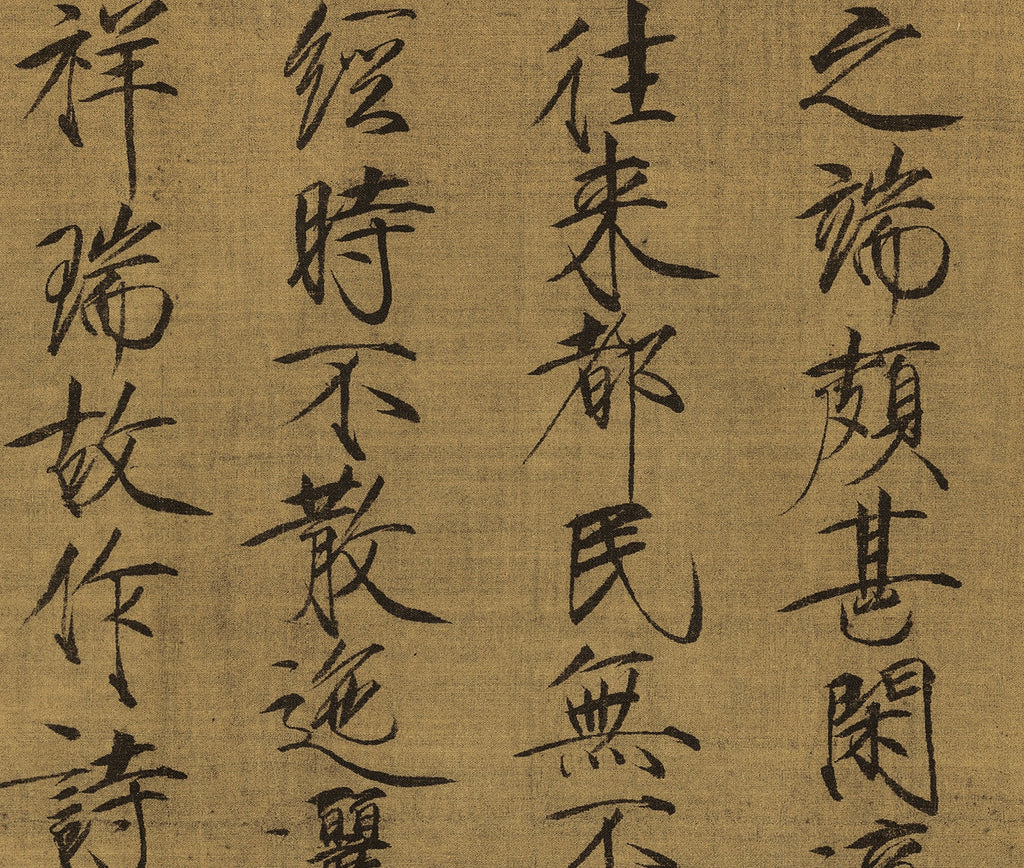 之端頗甚閑
往来都民無不
經時不散迤邐
祥瑞故作詩